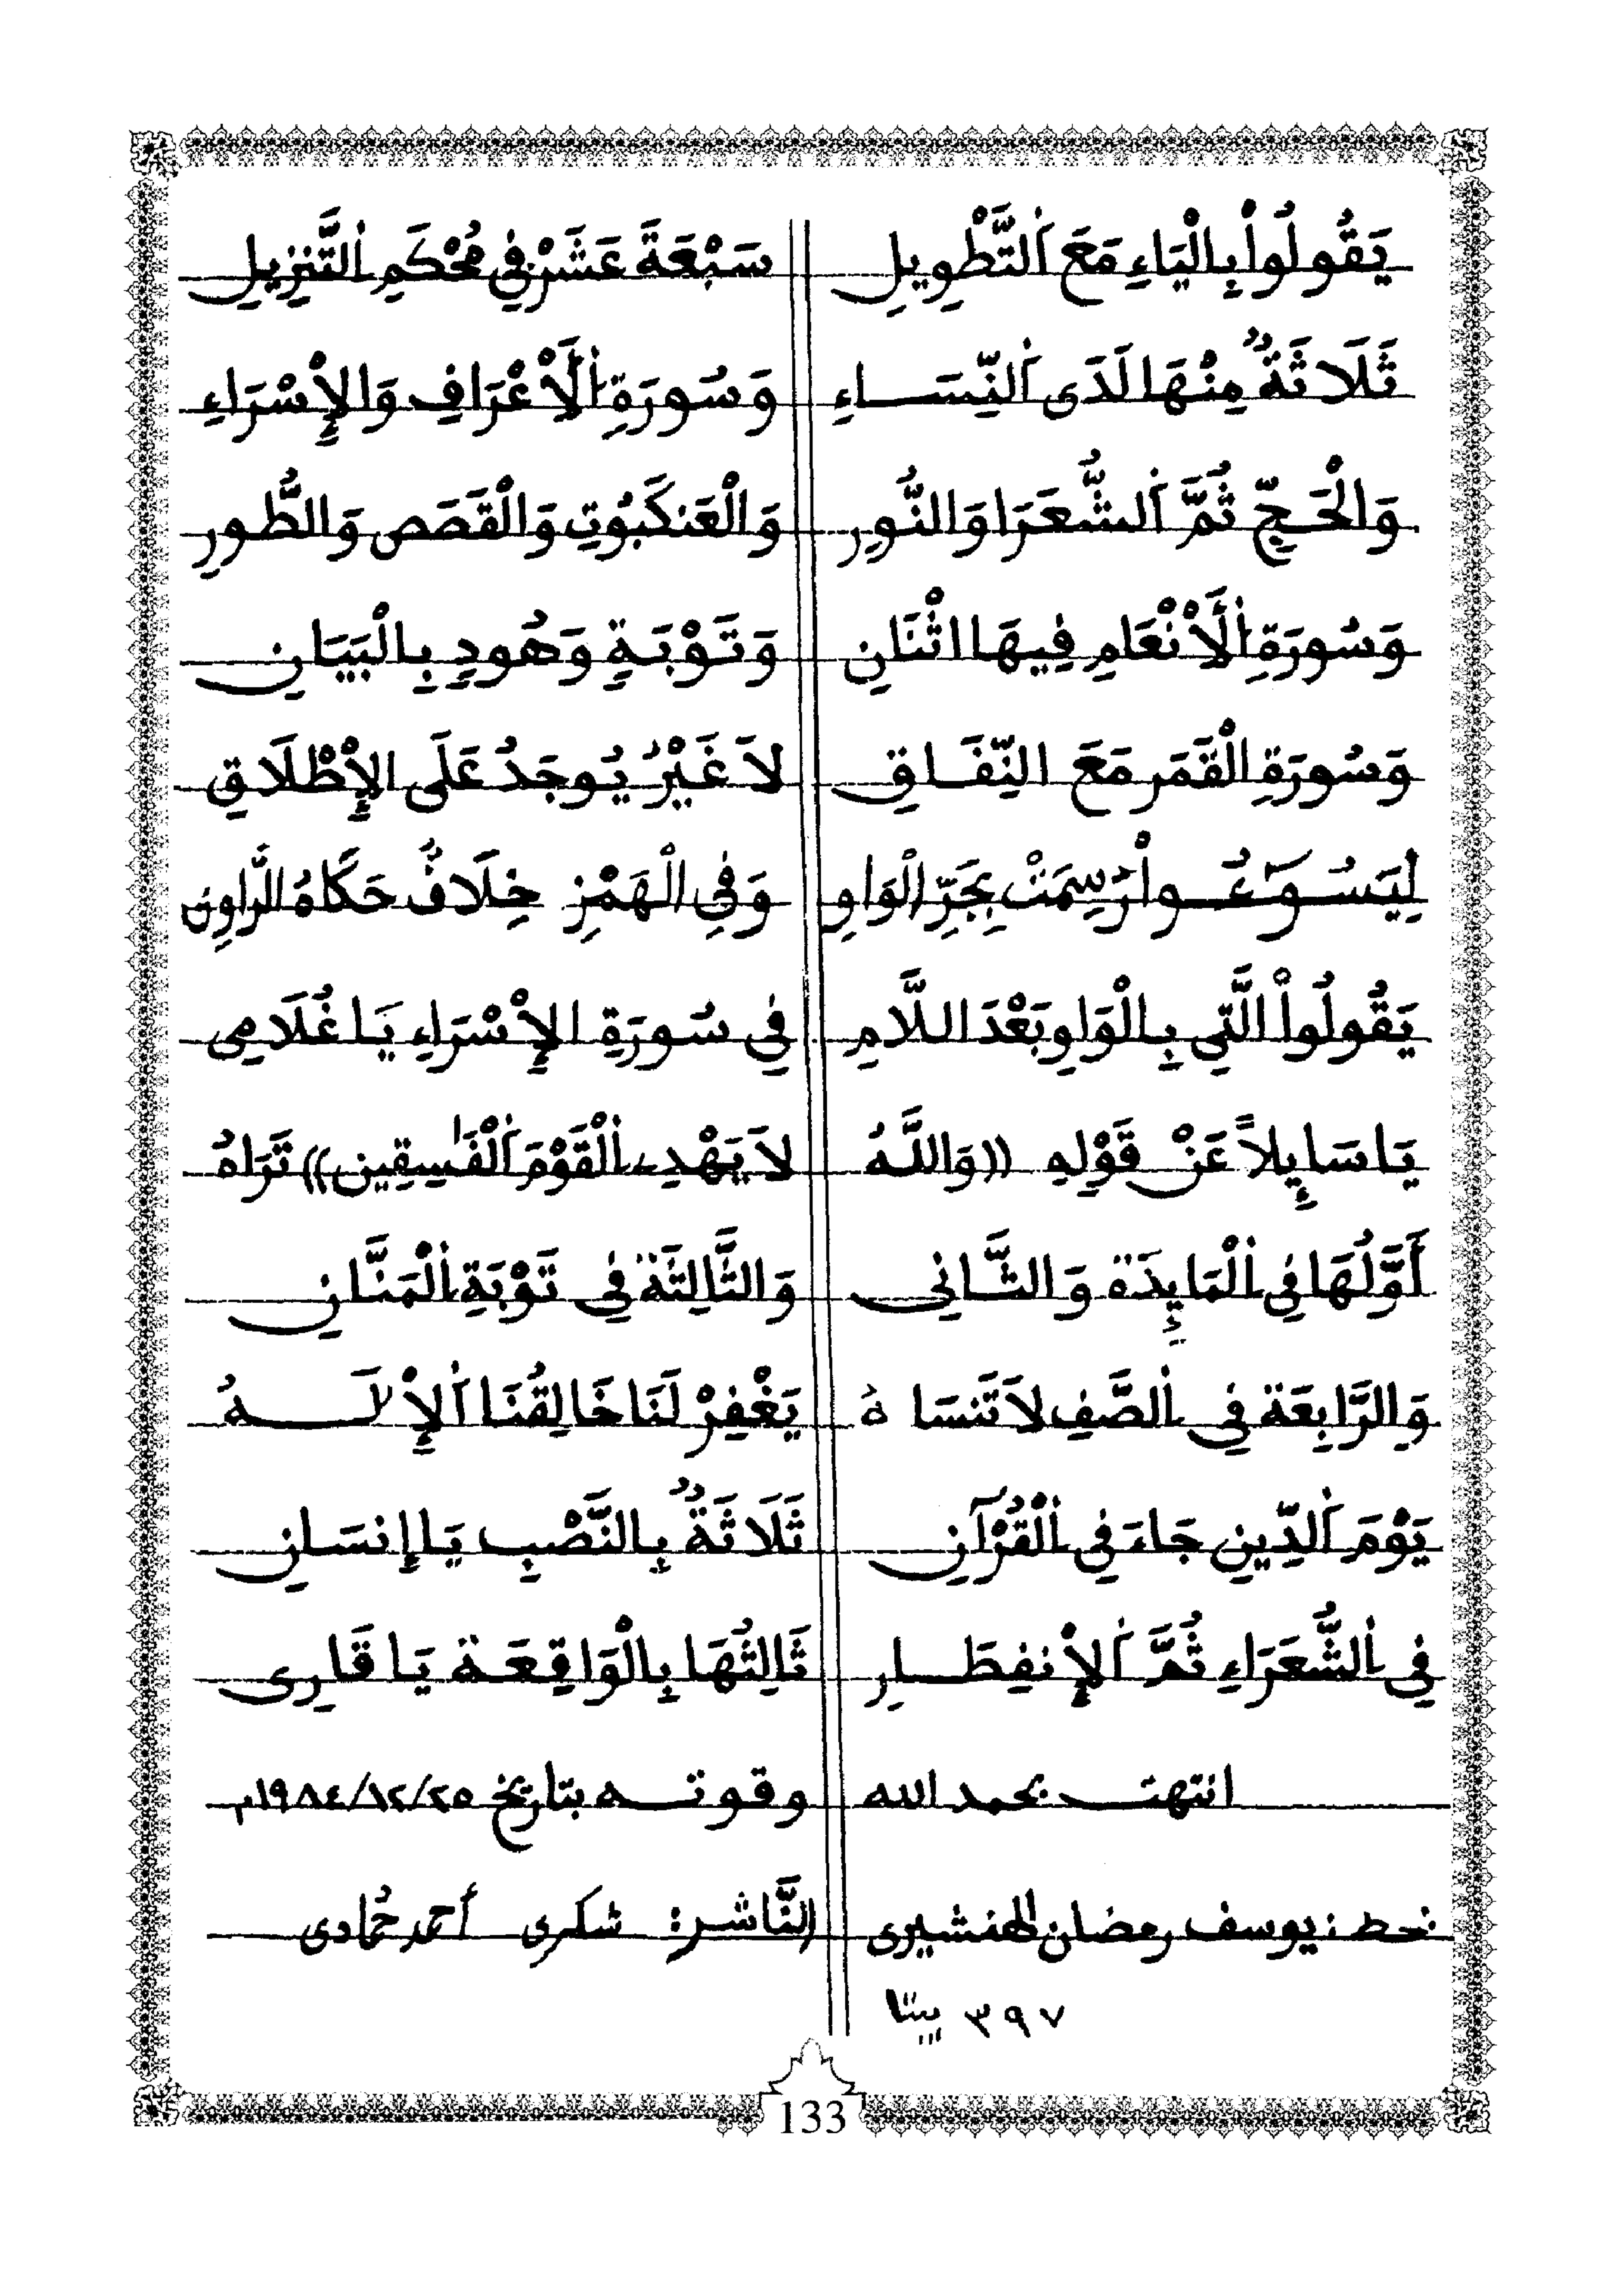 يَقُولُواْ بِالْيَاءِ مَعَ اَلتَّطْوِيلِ سَبْعَةَ عَشَرْ فِي مُحْكَمِ اِلتَّنِزِيلِ
ثَلَاثَةٌ مِنْهَا لَدَى اَلنِّسَاءِ وَسُورَةِ اِلَاْعْرَافِ وَالإِسْرَاءِ
وَالْحَجِّ ثُمَّ اَلشُّعَرَا وَالنُّورِ وَالْعَنكَبُوتِ وَالْقَصَصِ وَالطُّورِ
وَسُورَةِ اِلَاْنْعَامِ فِيهَا اثْنَانِ وَتَوْبَةٍ وَهُودٍ بِالْبَيَانِ
وَسُورَةِ الْقَمَرِ مَعَ النِّفَاقِ لاَ غَيْرُ يُوجَدُ عَلَى الإِطْلَاقِ
لِيَسُـُٔواْ رُسِمَتْ بِجَرِّ الْوَاوِ وَفِي الْهَمْزِ خِلَافٌ حَكَاهُ الرَّاوِن
يَقُولُواْ الَّتِي بِالْوَاوِ بَعْدَ اللَّامِ فِي سُورَةِ الإِسْرَاءِ يَا غُلَامِى
يَا سَايِٕلاً عَنْ قَوْلِهِ ((وَاللَّهُ لاَ يَهْدِے اِلْقَوْمَ اَلْفَٰسِقِين)) تَرَاهُ
أَوَّلُهَا فِي اِلْمَايِٕدَة وَالثَّانِى وَالثَّالِثَة فِي تَوْبَةِ اِلْمَنَّانِ
وَالرَّابِعَة فِي اِلصَّفِ لاَ تَنسَاهُ يَغْفِرْ لَنَا خَالِقُنَا اَلإِلَٰهُ
يَوْمَ اَلدِّينِ جَاءَ فِي اِلْقُرْآنِ ثَلَاثَةٌ بِالنَّصْبِ يَا إِنسَانِ
فِي اِلشُّعَرَاءِ ثُمَّ اَلإِنفِطَارِ ثَالِثُهَا بِالْوَاقِعَة يَا قَارِى
انتهت بحمد الله وقوته بتاريخ ٢٥/١٢/١٩٨٤م
بخط: يوسف رمضان الهنشيرى النَّاشر: شكرى أحمد حُمادى
٣٩٧ بيتا
133